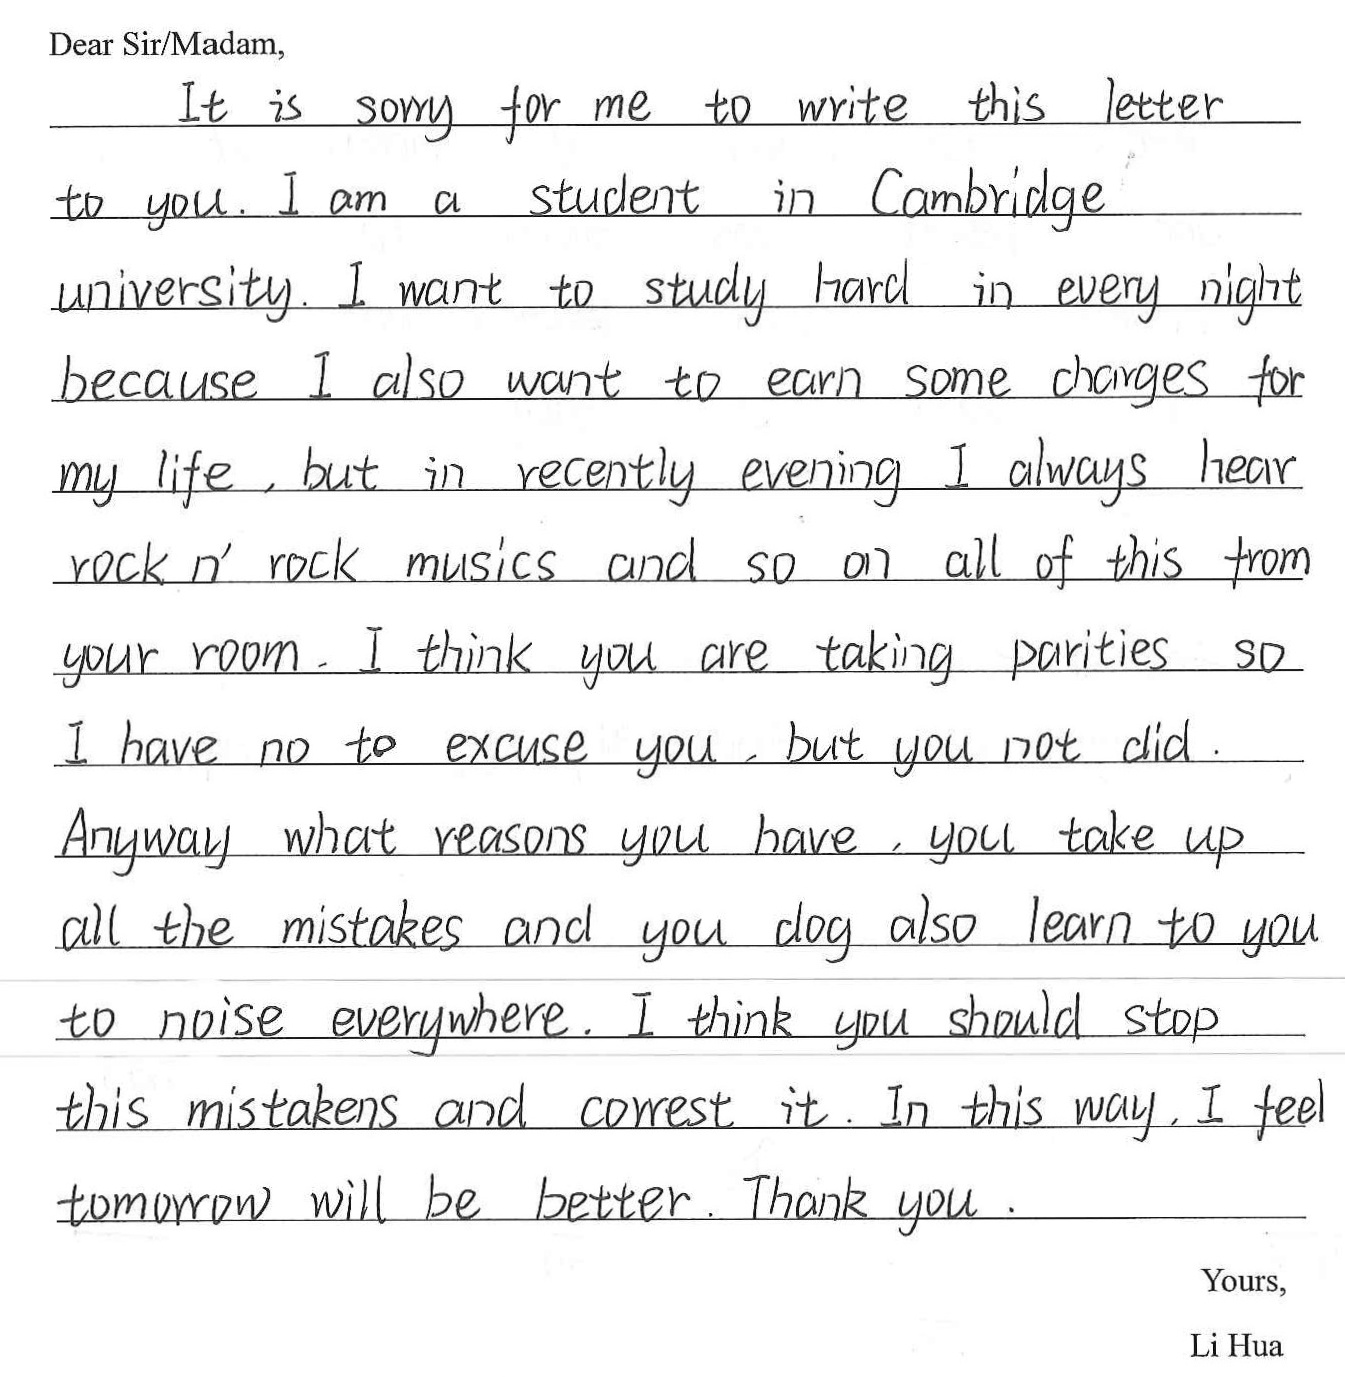 Dear Sir/Madam,
It is sorry for me to write this letter
to you. I am a student in Cambridge
university. I want to study hard in every night
because I also want to earn some charges for
my life, but in recently evening I always hear
rock n' rock musics and so on all of this from
your room. I think you are taking parities so
I have no to excuse you, but you not did.
Anyway what reasons you have, you take up
all the mistakes and you dog also learn to you
to noise everywhere. I think you should stop
this mistakens and correst it. In this way, I feel
tomorrow will be better. Thank you.
Yours,
Li Hua